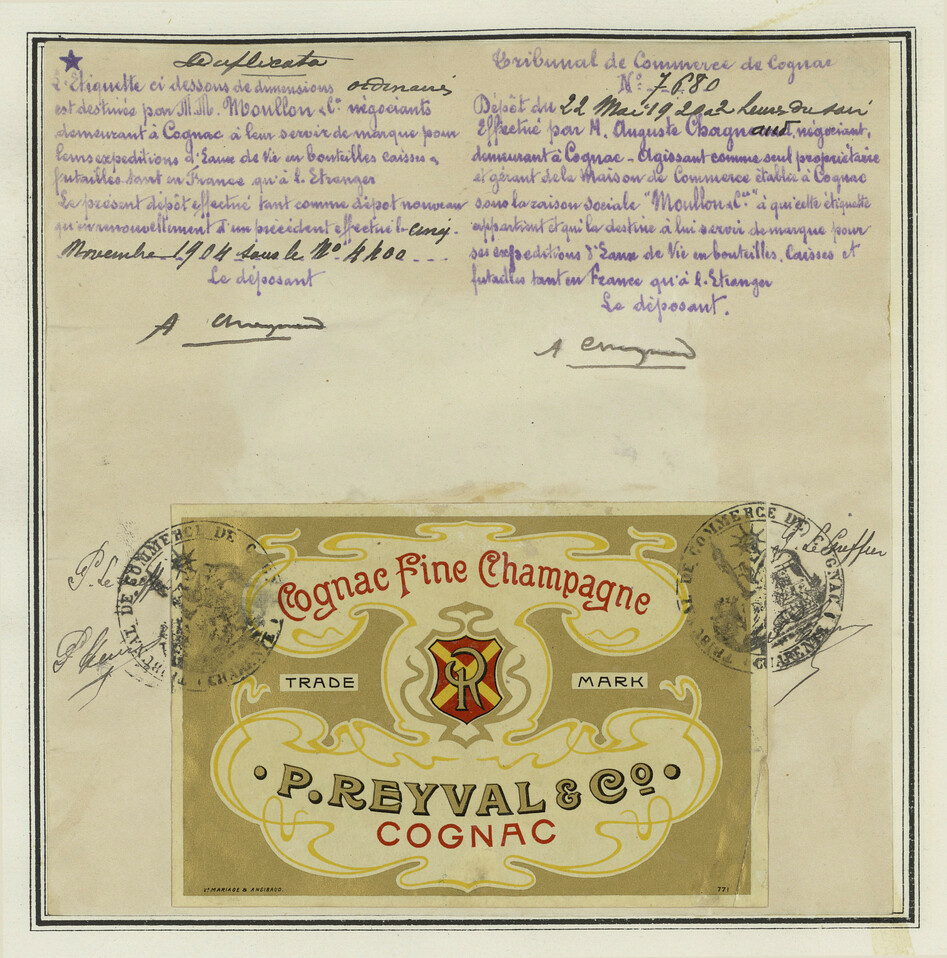 Duplicata
L'Etiquette ci dessous de dimensions ordinaires
est destinée par M.M. Moullon & Co négociants
demeurant à Cognac à leur servir de marque pour
leurs expeditions d'Eaux de Vie en bouteilles caisses &
futailles tant en France qu'à l'Etranger
Le présent dépôt effectué tant comme dépot nouveau
qu'en renouvellment d'un précédent effectué le cinq
Novembre 1904 sous le No. 4400
Le déposant
A Chagnaud
Tribunal de Commerce de Cognac
No. 7680
Dépôt du 22 Mai 19 à 2 heures du soir
Effectué par M. Auguste Chagnaud, négociant,
demeurant à Cognac - Agissant comme seul propriétaire
et gérant de la Maison de Commerce établie à Cognac
sous la raison sociale "Moullon & Co" à qui cette étiquette
appartient et qui la destine à lui servir de marque pour
ses expeditions d'Eaux de Vie en bouteilles, Caisses et
futailles tant en France qu'à l'Etranger
Le déposant.
A Chagnaud
DE COMMERCE DE
TRIBUNAL DE COMMERCE DE COGNAC
Le Greffier
Cognac Fine Champagne
TRADE MARK
R
• P. REYVAL & Co •
COGNAC
Vt MARIAGE & ANGIBAUD.
771